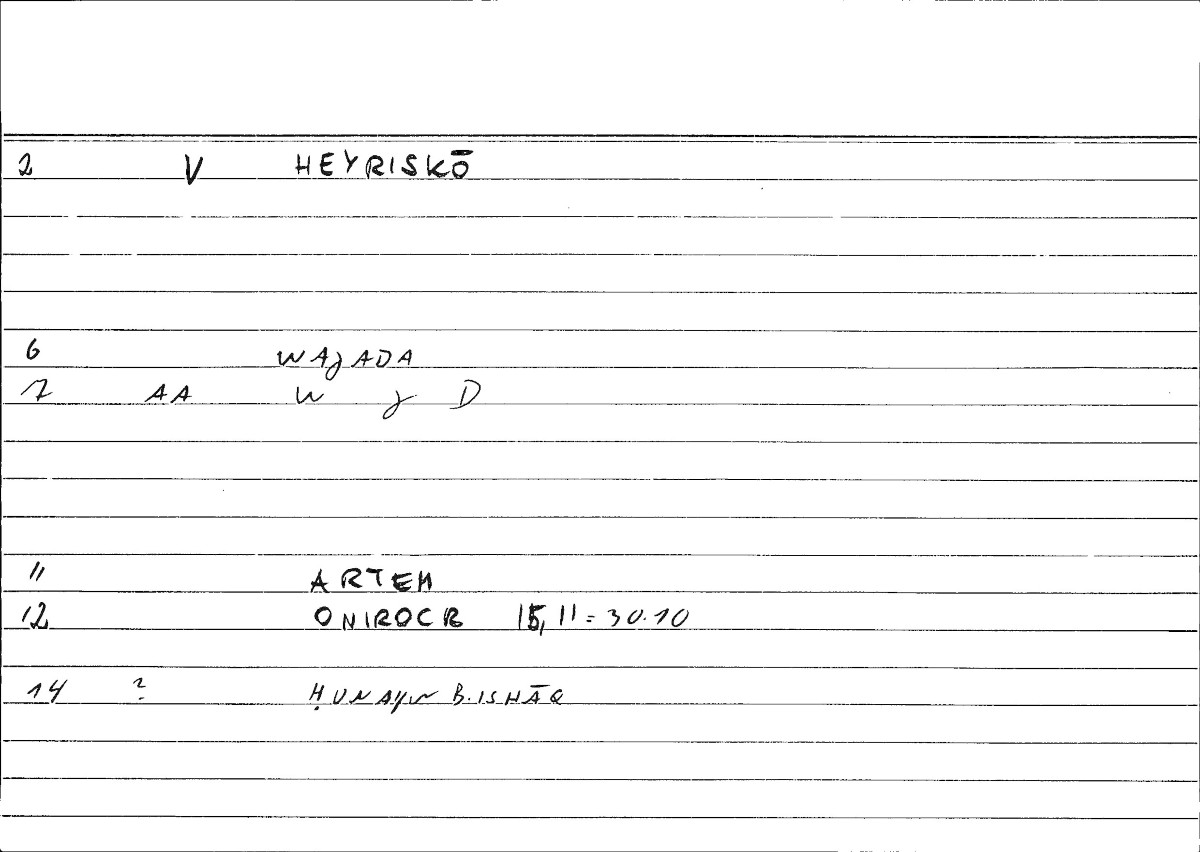 2 V HEYRISKŌ
6 WAJADA
7 AA W J D
11 ARTEM
12 ONIROCR 15, 11 = 30.10
14 ? ḤUNAYN B. ISHĀQ